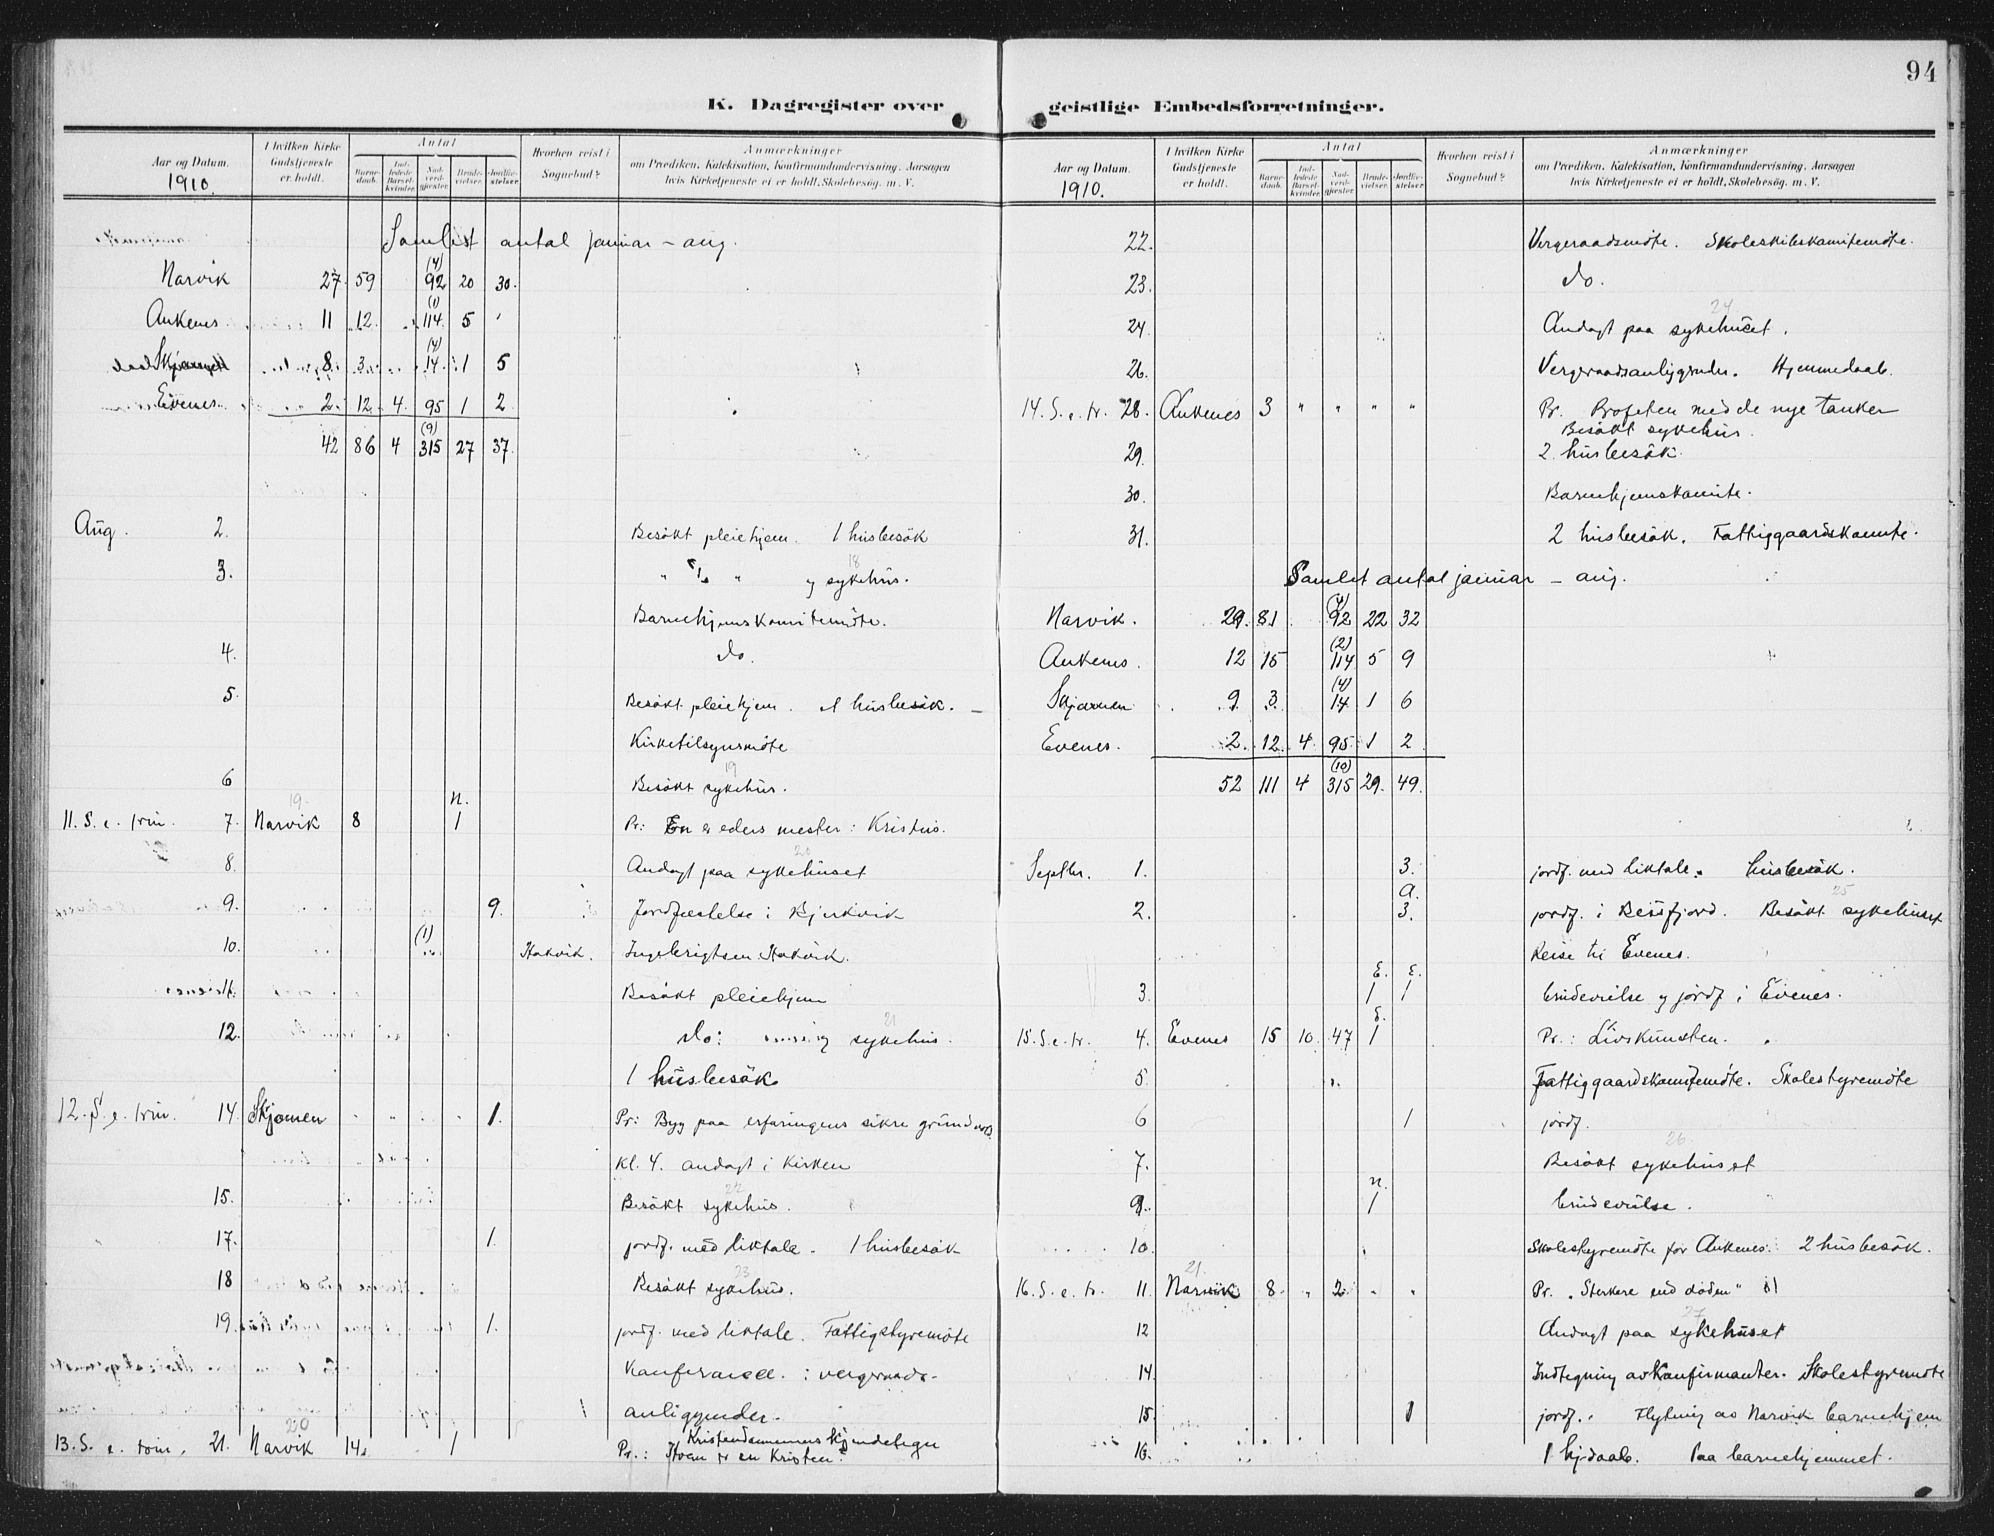 94
K. Dagregister over geistlige Embedsforretninger.
Aar og Datum. 1910. | I hvilken Kirke Gudstjeneste er holdt. | Antal | Barnedaab. | Indledede Barselkvinder. | Nadverdgjester. | Brudevielser. | Jordfæstelser. | Hvorhen reist i Sognebud? | Anmærkninger om Prædiken, Katekisation, Konfirmandundervisning, Aarsagen hvis Kirketjeneste ei er holdt, Skolebesøg. m. V.
Samlet antal januar – aug.
Narvik 27. 59 (4) 92 20 30.
Ankenes 11 12. (1) 114 5
8. 3 (4) 14 1 5
Evenes 2. 12 4. 95 1 2
42 86 4 (9) 315 27 37.
Aug. 2. Besökt pleiehjem. 1 husbesök
3. " " og sykehus. 18
Barnehjemskomitemöte.
4. do.
5. Besökt pleiehjem. 1 husbesök. –
Kirketilsynsmöte
6 Besökt sykehus. 19
11. S. e. trin. 7. Narvik 19. 8 n. 1 Pr: En er eders mester: Kristus.
8. Andagt paa sykehuset 20
9. 9. Jordfæstelse i Bjerkvik
10. (1) Hakvik. Ingebrigtsen Hakvik.
11. Besökt pleiehjem
12. do: og sykehus. 21
1 husbesök
12. S. e. trin. 14. Skjomen " " 1. Pr: Byg paa erfaringens sikre grundvold.
Kl. 4. andagt i Kirken
15. Besökt sykehus. 22
17. 1. jordf. med liktale. 1 husbesök
18 Besökt sykehus. 23
19. 1. jordf. med liktale. Fattigstyremöte
Konferanse i vergeraads-
anliggender.
13. S. e. trin. 21. Narvik 20 14. 1 Pr.: Hvem er en Kristen? Kristendommens kjendetegn
Aar og Datum. 1910. | I hvilken Kirke Gudstjeneste er holdt. | Antal | Barnedaab. | Indledede Barselkvinder. | Nadverdgjester. | Brudevielser. | Jordfæstelser. | Hvorhen reist i Sognebud? | Anmærkninger om Prædiken, Katekisation, Konfirmandundervisning, Aarsagen hvis Kirketjeneste ei er holdt, Skolebesøg. m. V.
22. Vergeraadsmöte.
23. do.
24. Andagt paa sykehuset. 24
26. Vergeraadsanliggender. Hjemmedaab.
14. S. e. tr. 28. Ankenes 3 " " " " Pr. Profeten med de nye tanker
Besökt sykehus.
29. 2 husbesök.
30. Barnehjemskomite.
31. 2 husbesök. Fattiggaardskomite.
Samlet antal januar – aug.
Narvik. 29. 81 (4) 92 22 32
Ankenes. 12 15 (2) 114 5 9
Skjomen 9 3. (4) 14 1 6
Evenes. 2. 12 4 95 1 2
52 111 4 (10) 315 29. 49.
Septbr. 1. 3. jordf. med liktale. husbesök.
2. a. 3. jordf. i Beisfjord. Besökt sykehuset 25
Reise til Evenes.
3. E. 1 E. 1 brudevielse og jordf i Evenes.
15. S. e. tr. 4. Evenes 15 10. 47 E. 1 Pr.: Livskunsten.
5. Fattiggaardskomitemöte. Skolestyremöte
6 1 jordf.
7. Besökt sykehuset 26.
9. n. 1 brudevielse.
10. Skolestyremöte for Ankenes. 2 husbesök.
16. S. e. tr. 11. Narvik 21. 8. " 2 " " Pr. "Sterkere end döden"
12 Andagt paa sykehuset 27
14. Indtegning av Konfirmanter. Skolestyremöte
15. 1 jordf. Flytning av Narvik barnehjem
16. 1 hj.daab. Paa barnehjemmet.